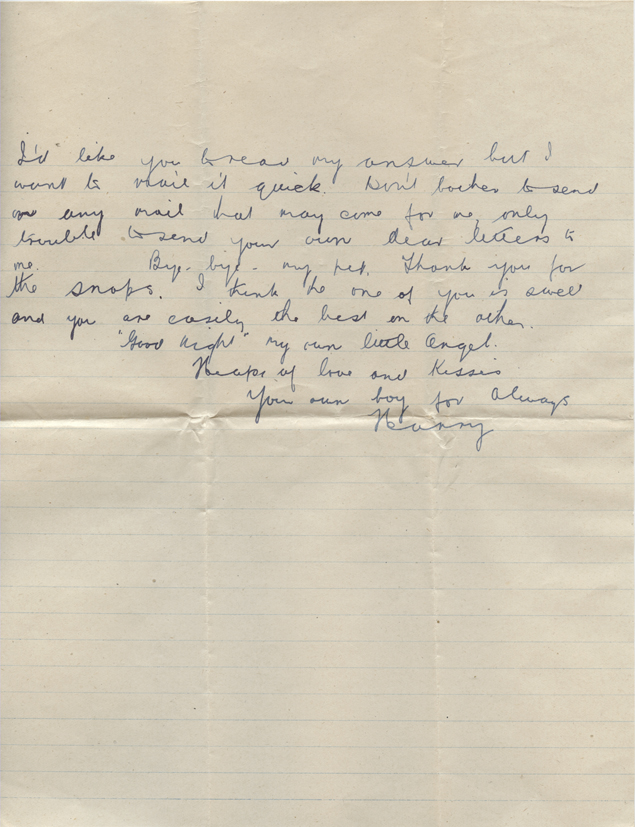 I'd like you to read my answer but I
want to mail it quick. Don't bother to send
me any mail that may come for me, only
trouble to send your own dear letters to
me. Bye-bye- my pet. Thank you for
the snaps. I think the one of you is swell
and you are easily the best on the other.
"Good Night" my own little Angel.
Heaps of love and Kisses
Your own boy for Always
Harry